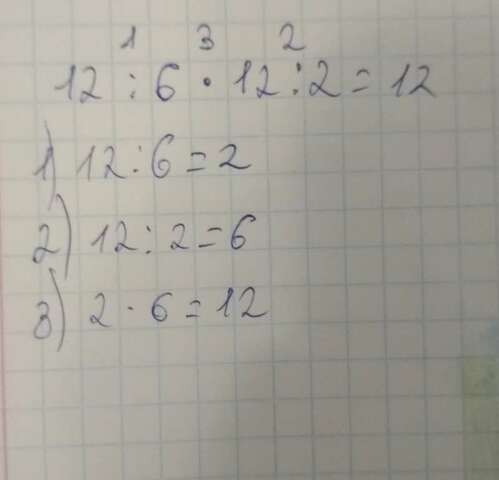 1 3 2
12 : 6 · 12 : 2 = 12
1) 12 : 6 = 2
2) 12 : 2 = 6
3) 2 · 6 = 12